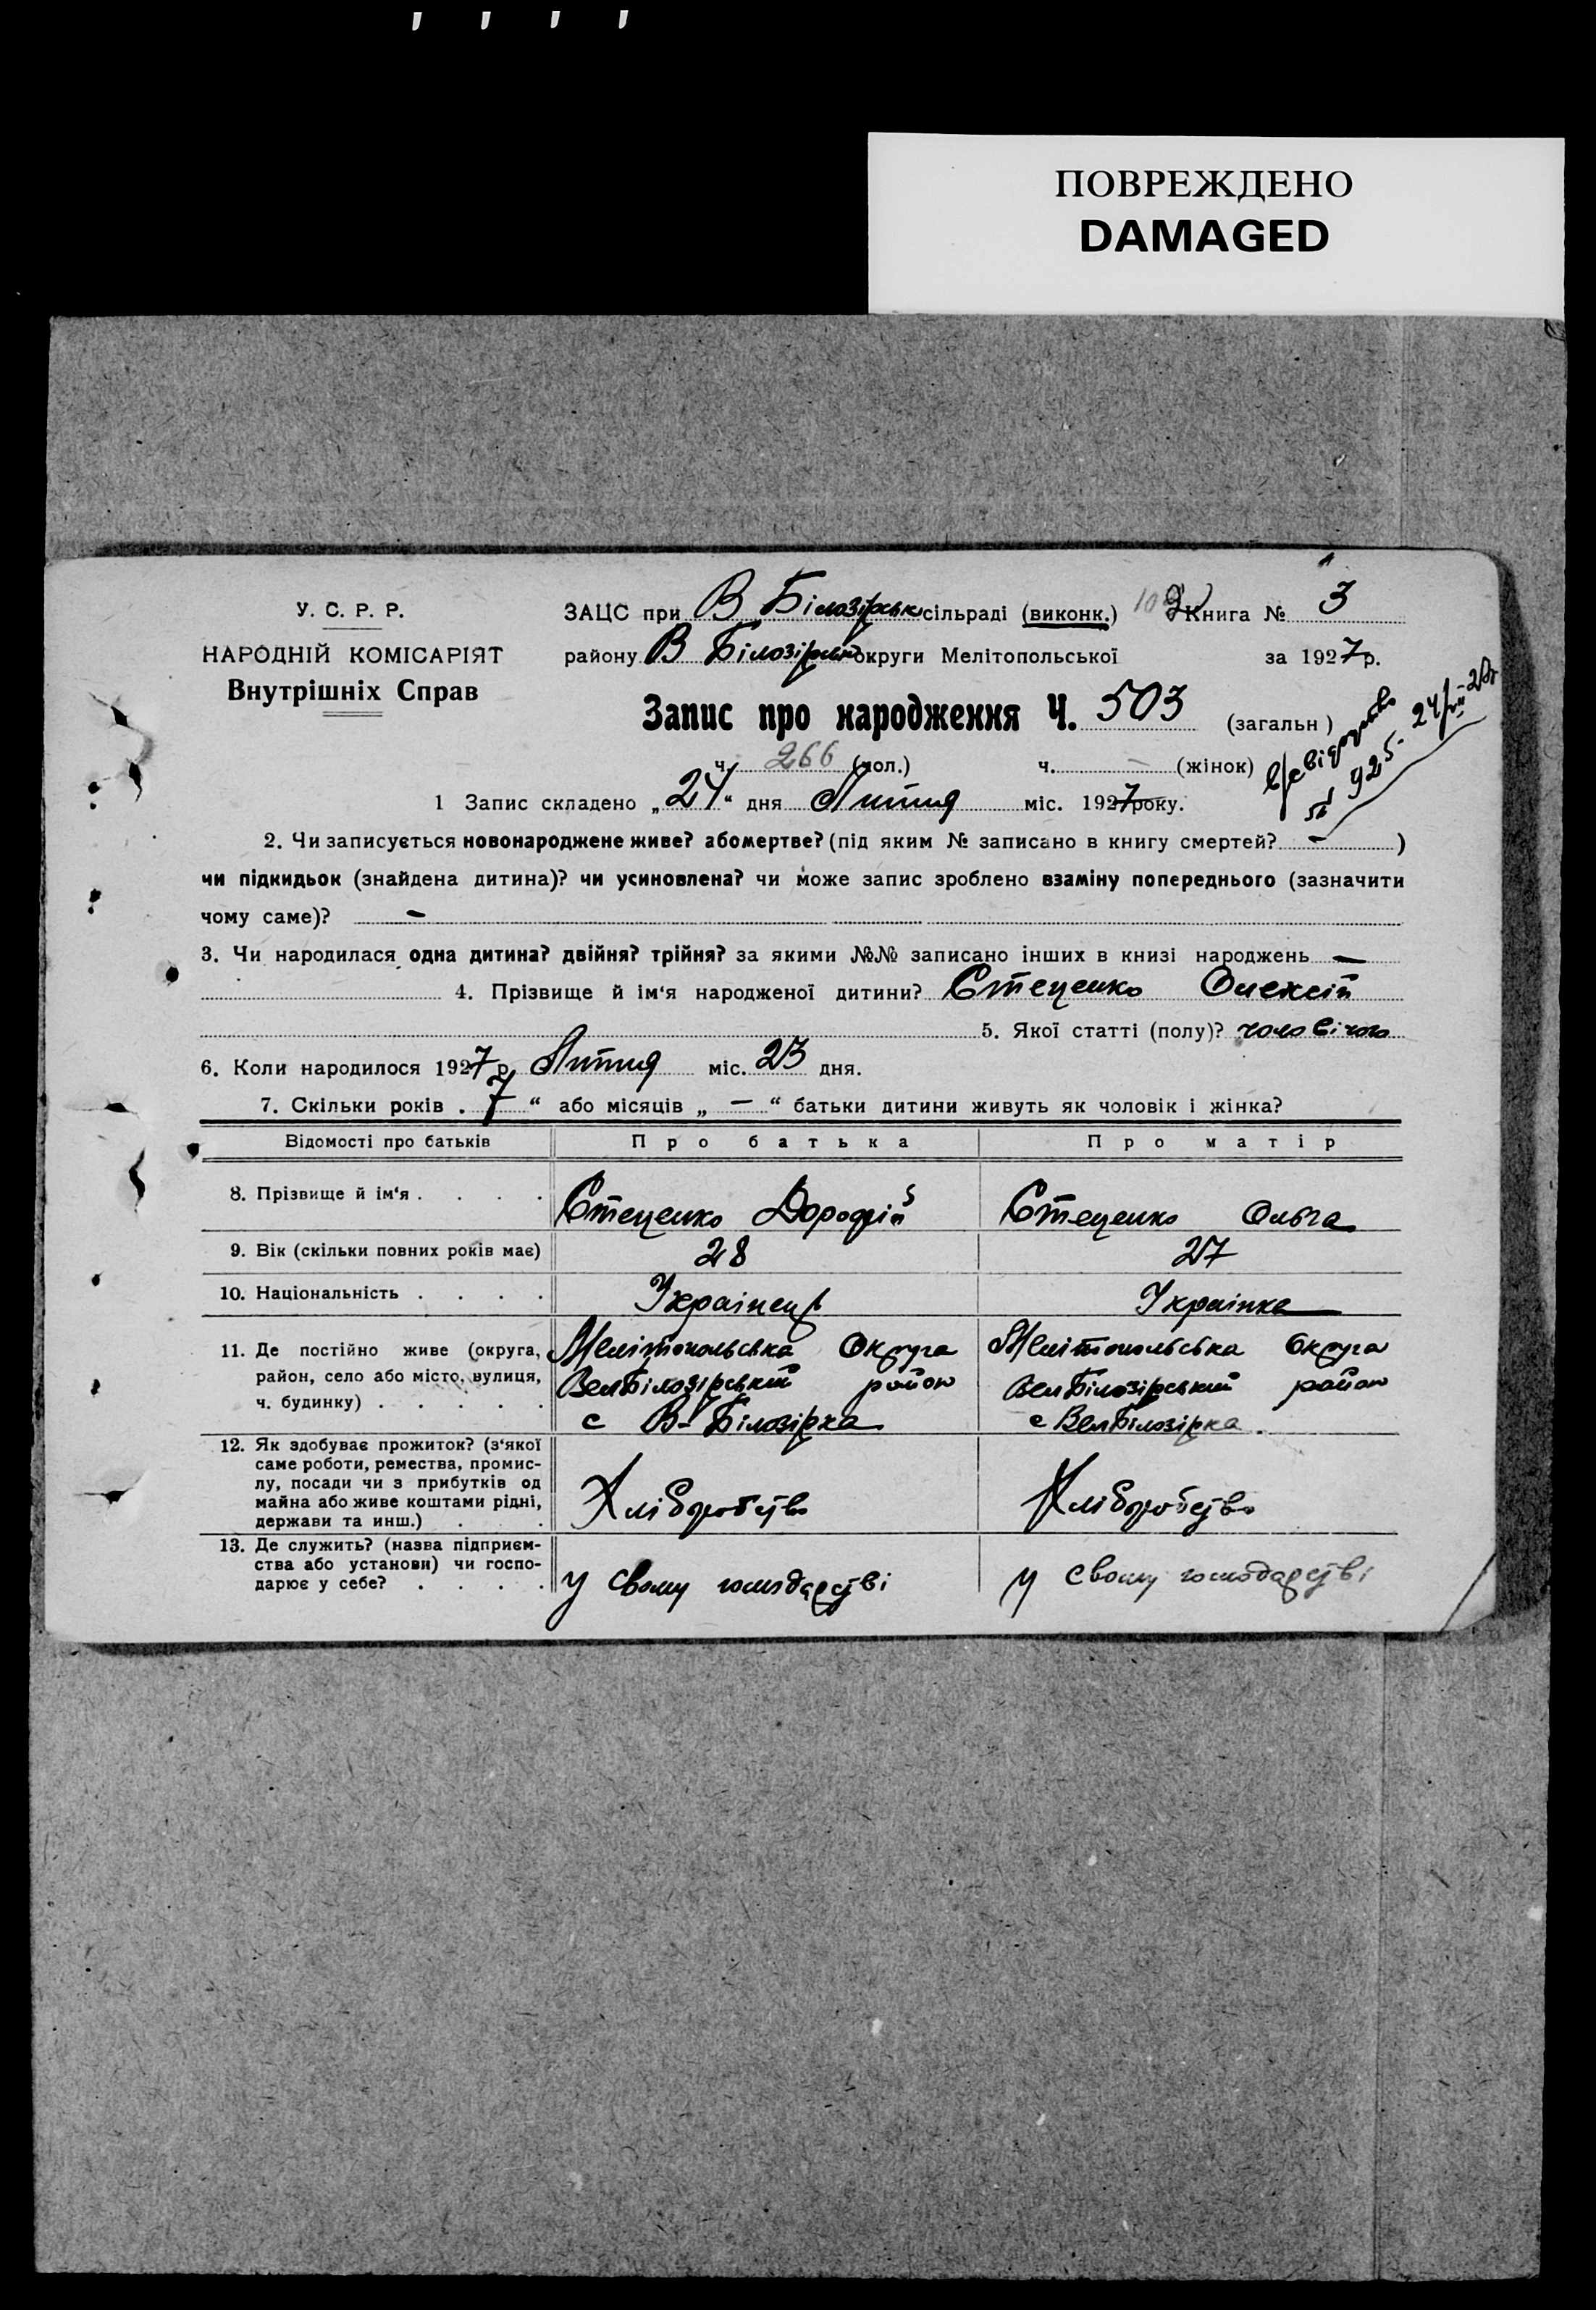 ПОВРЕЖДЕНО
DAMAGED
У. С. Р. Р.
НАРОДНІЙ КОМІСАРІЯТ
Внутрішніх Справ
ЗАЦС при В Білозірськ сільраді (виконк.) Книга № 3
району В Білозірськ округи Мелітопольської за 1927 р.
Запис про народження Ч. 503 (загальн)
ч. 266 (чол.) ч. — (жінок)
1 Запис складено „24“ дня Липня міс. 1927 року.
2. Чи записується новонароджене живе? або мертве? (під яким № записано в книгу смертей? — )
чи підкидьок (знайдена дитина)? чи усиновлена? чи може запис зроблено взаміну попереднього (зазначити
чому саме)? —
3. Чи народилася одна дитина? двійня? трійня? за якими №№ записано інших в книзі народжень —
4. Прізвище й ім'я народженої дитини? Стеценко Олексій
5. Якої статті (полу)? чоловічого
6. Коли народилося 1927 р. Липня міс. 23 дня.
7. Скільки років . 7 “ або місяців „ — “ батьки дитини живуть як чоловік і жінка?
Відомості про батьків Про батька Про матір
8. Прізвище й ім'я . . . . Стеценко Дорофій Стеценко Ольга
9. Вік (скільки повних років має) 28 27
10. Національність . . . . Українец Українка
11. Де постійно живе (округа, Мелітопольська Округа Мелітопольська Округа
район, село або місто, вулиця, ВелБілозірський район ВелБілозірський район
ч. будинку) . . . . . с В-Білозірка с ВелБілозірка
12. Як здобуває прожиток? (з'якої
саме роботи, ремества, промис-
лу, посади чи з прибутків од
майна або живе коштами рідні, Хліборобство Хліборобство
держави та инш.) . .
13. Де служить? (назва підприєм-
ства або установи) чи госпо-
дарює у себе? . . . . У свому господарстві У свому господарстві